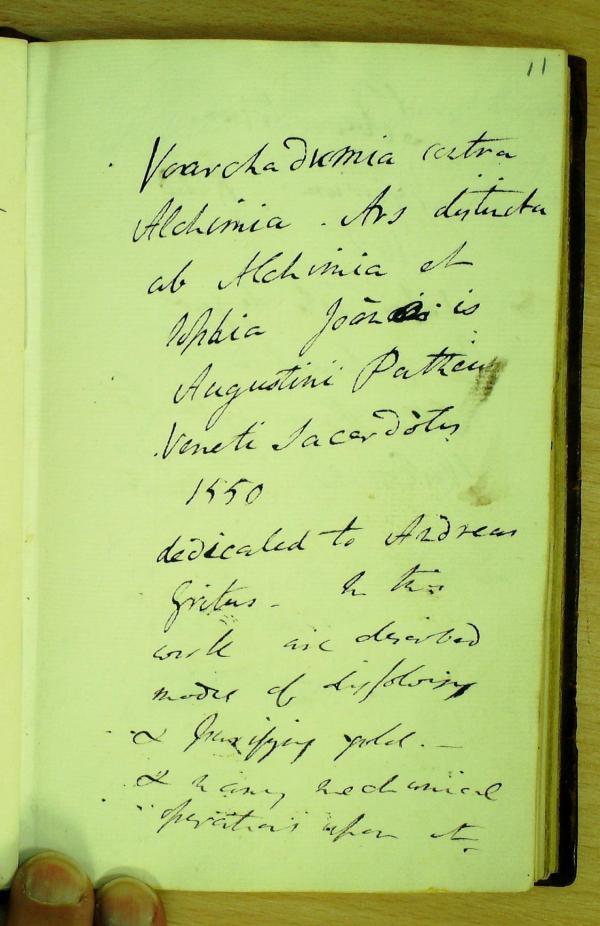 11
Voarchadumia contra
Alchimia. Ars distincta
ab Alchimia et
Sophia Joannis
Augustini Panthei
Veneti Sacerdotis
1550
dedicated to Andreas
Gritus - In this
work are described
modes of dissolving
& purifying gold. -
& many mechanical
operations upon it.